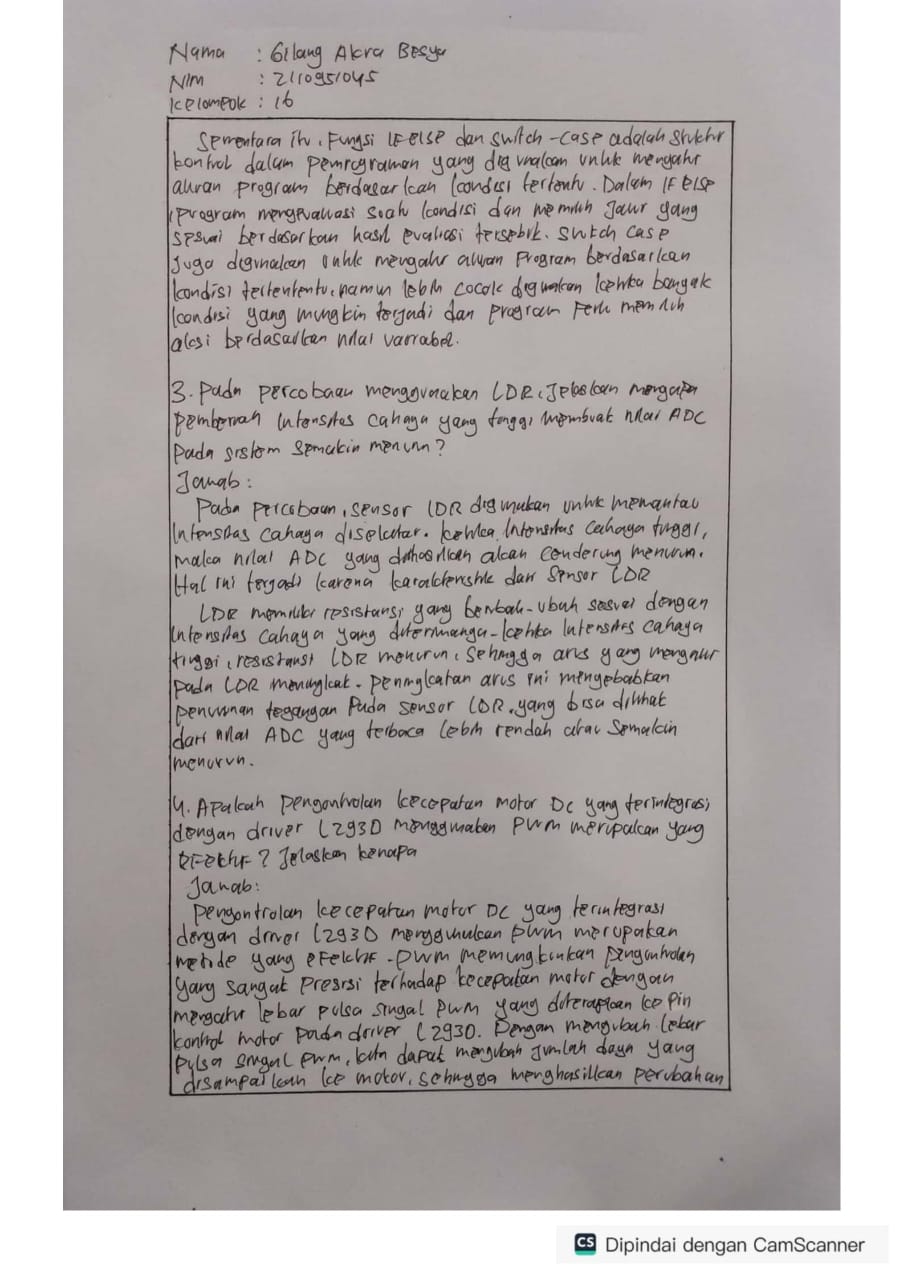 Nama : Gilang Akra Besya
NIM : 2110951045
Kelompok : 16
Sementara itu, Fungsi IF ELSE dan switch-case adalah struktur
kontrol dalam pemrograman yang digunakan untuk mengatur
aliran program berdasarkan kondisi tertentu. Dalam IF ELSE
program mengevaluasi suatu kondisi dan memilih jalur yang
sesuai berdasarkan hasil evaluasi tersebut. Switch case
juga digunakan untuk mengatur aliran program berdasarkan
kondisi tertententu, namun lebih cocok digunakan ketika banyak
kondisi yang mungkin terjadi dan program perlu memilih
aksi berdasarkan nilai variabel.
3. Pada percobaan menggunakan LDR, Jelaskan mengapa
pemberian Intensitas cahaya yang tinggi membuat nilai ADC
pada sistem semakin menurun?
Jawab :
Pada percobaan, sensor LDR digunakan untuk memantau
Intensitas cahaya disekitar. Ketika Intensitas cahaya tinggi,
maka nilai ADC yang dihasilkan akan cenderung menurun.
Hal ini terjadi karena karakteristik dari sensor LDR
LDR memiliki resistansi yang berubah-ubah sesuai dengan
Intensitas cahaya yang diterimanya. Ketika Intensitas cahaya
tinggi, resistansi LDR menurun, Sehingga arus yang mengalir
pada LDR meningkat. peningkatan arus ini mengebabkan
penurunan tegangan Pada sensor LDR, yang bisa dilihat
dari nilai ADC yang terbaca lebih rendah atau semakin
menurun.
4. Apakah pengontrolan kecepatan motor DC yang terintegrasi
dengan driver L293D menggunakan PWM merupakan yang
EFektiF ? Jelaskan kenapa
Jawab:
Pengontrolan kecepatan motor DC yang terintegrasi
dengan driver L293D menggunakan PWM merupakan
metode yang efektif. PWM memungkinkan pengontrolan
yang sangat presisi terhadap kecepatan motor dengan
mengatur lebar pulsa sinyal PWM yang diterapkan ke pin
kontrol motor pada driver L293D. Dengan mengubah lebar
pulsa sinyal PWM, kita dapat mengubah jumlah daya yang
disampaikan ke motor, sehingga menghasilkan perubahan
CS Dipindai dengan CamScanner